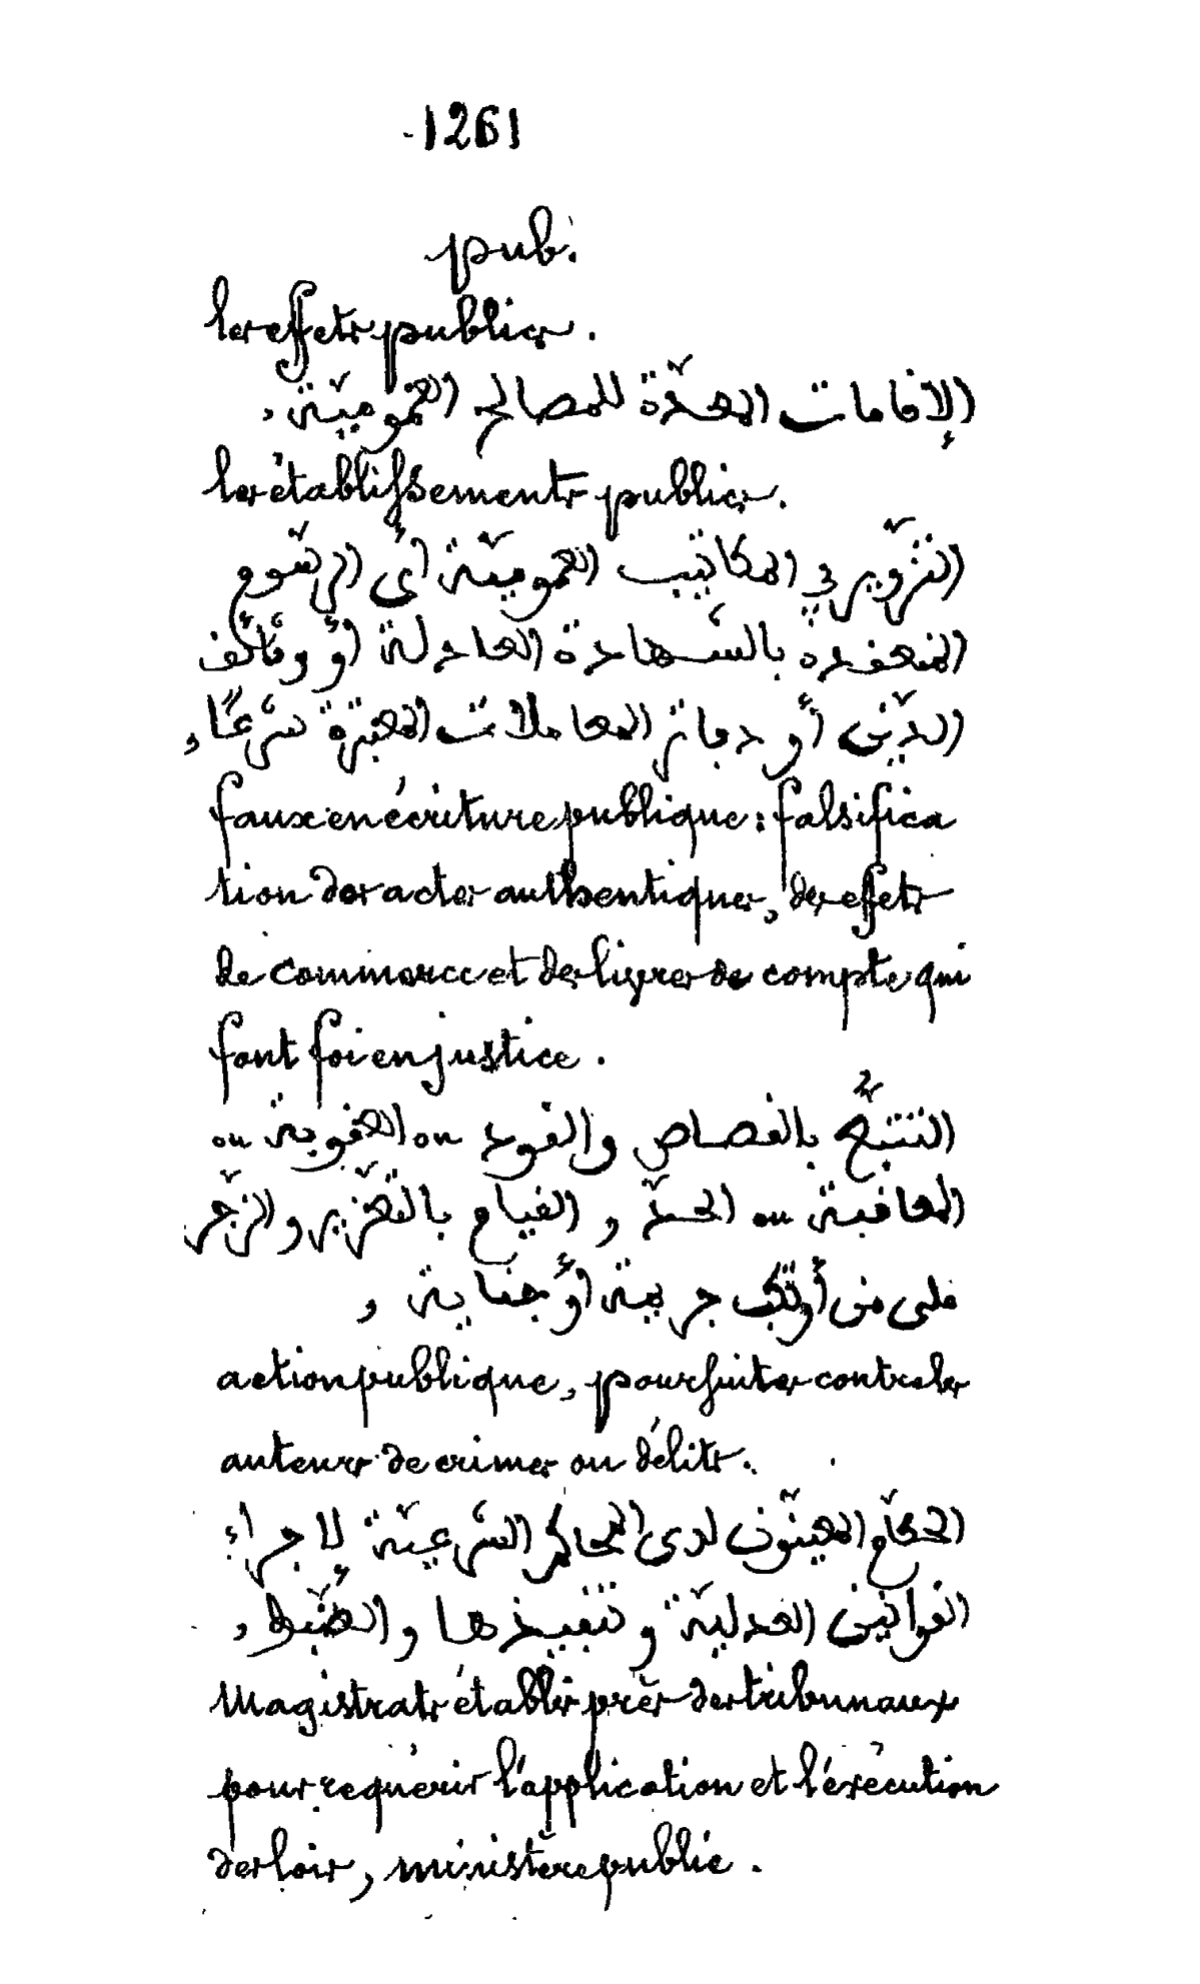 1261
pub.
les effets publics.
الإقامات المعدّة للمصالح العموميّة,
les établissements publics.
التزّوير في المكاتيب العموميّة أي الرّسوم
المنعقدة بالشهادة العادلة أو وثائق
الديّن أو دفاتر المعاملات المعتبرة شرعًا,
faux en écriture publique : falsifica
tion des actes authentiques, des effets
de commerce et des livres de compte qui
font foi en justice.
التتبّع بالقصاص والقود ou العقوبة ou
المعاقبة ou الحدّ, القيام بالتّعزير والزّجر
على من أرتكب جريمة أو جناية,
action publique, poursuites contre les
auteurs de crimes ou délits.
الحكّام المعينّون لدى المحاكم الشرعيّة لإجراء
القوانين العدليّة وتنفيذها والضّبط,
Magistrats établis près des tribunaux
pour requérir l'application et l'éxécution
des lois, ministère public.